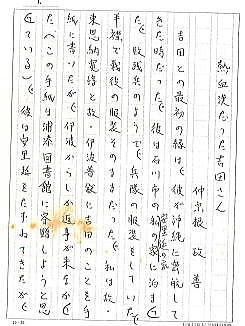 熱血漢だった吉田さん
仲宗根政善
吉田との最初の縁は、彼が沖縄に密航して
きた時だった。彼は石川市の私の家に泊ま
た。敗残兵のようで、兵隊の服装をしていた。
半機で戦後の服装そのままだった。私は故・
東恩納寛惇と故・伊波普猷に吉田のことを手
紙に書いたが、伊波からしか返事が来なか
た(この手紙は浦添図書館に寄贈しようと思
っている)。彼は南里
をたずねてきたが、